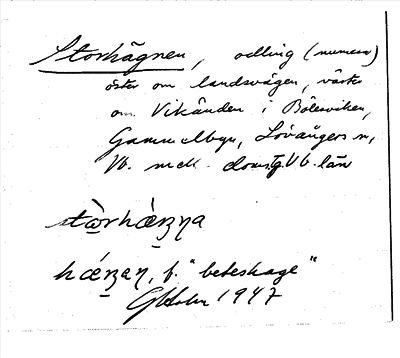 Storhägnen, odling (numera)
öster om landsvägen, väster
om Vikänden i Bölesviken,
Gammelbyn, Lövångers sn,
Vb.
stòrhæ̀ŋa
hǽŋaŋ, f. "beteshage"
1947